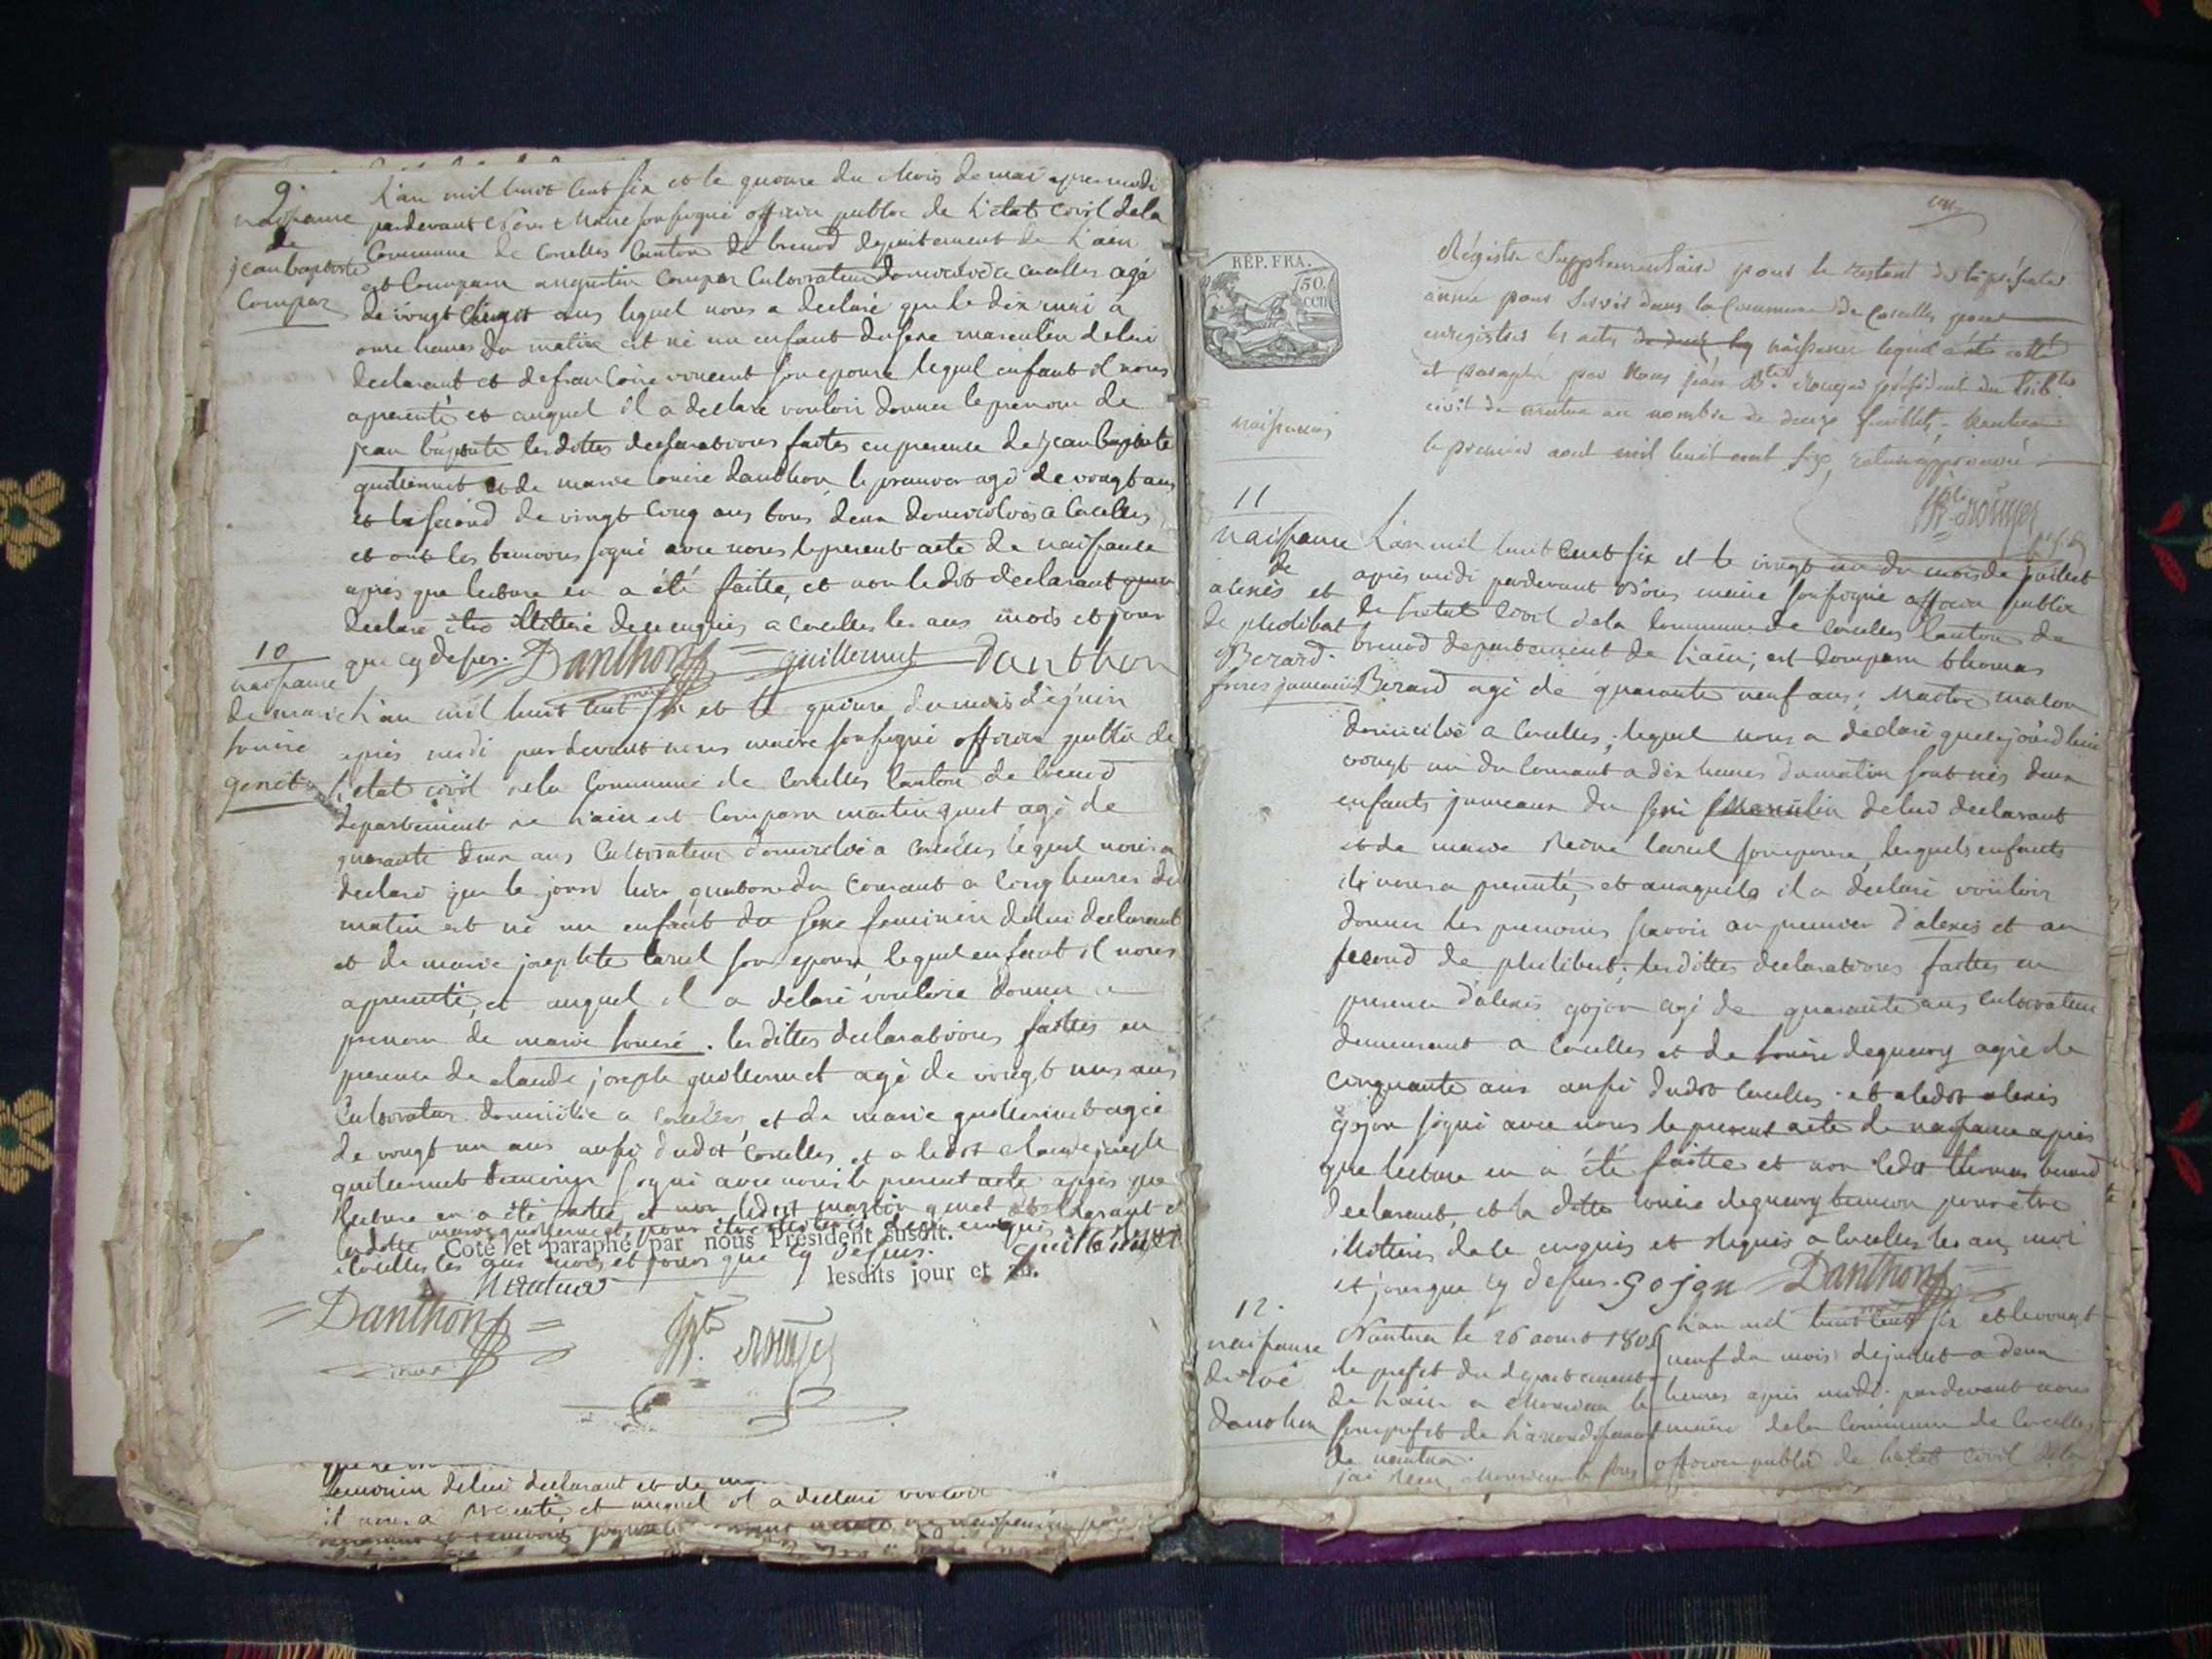 9.
naissance
de
jean baptiste
Compar
L'an mil huit cent six et le quinze du Mois de mai apres midi
pardevant Nous Maire soussigné officier public de L'etat civil dela
Commune de Corcelles Canton de brenod departement de L'ain
est Comparu augustin Compar Cultivateur domicilié a Corcelles agé
de vingt ans lequel nous a declaré que le dix mai a
onze heures du matin est né un enfant du sexe masculin de lui
declarant et de francoise vincent son epouse lequel enfant il nous
a presenté et auquel il a declaré vouloir donner le prenom de
jean baptiste les dittes declarations faites en presence de jean baptiste
guillermet et de marie louise danthon, le premier agé de vingt ans
et la second de vingt cinq ans tous deux domiciliés a Corcelles
et ont les temoins signé avec nous le present acte de naissance
après que lecture en a été faitte, et non ledit declarant pour
declaré etre illitteré de ce enquis a Corcelles les ans mois et jour
que cy dessus. Danthon guillermet Danthon
maire
10
naissance
de marie
louise
genet
L'an mil huit cent six et le quinze du mois de juin
après midi pardevant nous maire soussigné officier public de
L'etat civil dela Commune de Corcelles Canton de brenod
departement de L'ain est Comparu martin genet agé de
quarante deux ans Cultivateur domicilié a Corcelles lequel nous a
declaré que le jour hier quatorze du Courant a Cinq heures du
matin est né un enfant du sexe feminin de lui declarant
et de marie josephte Carrel son epouse, lequel enfant il nous
a presenté, et auquel il a declaré vouloir donner le
prenom de marie louise. les dittes declarations faittes en
presence de claude joseph guillermet agé de vingt ans
Cultivateur domicilié a Corcelles, et de marie guillermet agée
de vingt un ans aussi dudit Corcelles et a ledit claude joseph
guillermet temoin signé avec nous le present acte après que
lecture en a été faitte et non ledit martin genet declarant et
laditte marie guillermet, pour être illiterés de ce enquis a
Corcelles les ans mois et jour que cy dessus. guillermet
Coté et paraphé par nous Président susdit.
A Nantua lesdits jour et an.
Danthon
maire
Jn Bte Rouyer
feminin de lui declarant et de
il nous a presenté et auquel il a declaré vouloir
RÉP. FRA.
50
CEN
naissances
Régistre Supplementaire pour le restant de la présente
année pour servir dans la Commune de Corcelles pour
enregistrer les actes de naissance lequel a été cotté
et paraphé par Nous jean Bte Rouyer président du trib.
civil de Nantua au nombre de deux feuillets, Nantua
le premier aout mil huit cent six,
Jn Bte Rouyer
11
naissance
de
alexis et
de philibert
Berard.
freres jumeaux
L'an mil huit Cent six et le vingt un du mois de juillet
après midi pardevant Nous maire soussigné officier public
de L'etat Civil dela Commune de Corcelles Canton de
brenod departement de L'ain; est Comparu thomas
Berard agé de quarante neuf ans; Maitre maçon
domicilié a Corcelles; lequel nous a declaré que ce jourd'hui
vingt un du Courant a dix heures du matin sont nés deux
enfants jumeaux du sexe masculin de lui declarant
et de marie Reine Carrel son epouse, lesquels enfants
il nous a presenté, et auxquels il a declaré vouloir
donner les prenoms scavoir au premier d'alexis et au
second de philibert; les dittes declarations faittes en
presence d'alexis gojon agé de quarante ans Cultivateur
demeurant a Corcelles et de louise deguerry agée de
Cinquante ans aussi dudit Corcelles. et a ledit alexis
gojon signé avec nous le present acte de naissance après
que lecture en a été faitte et non ledit thomas berard
declarant, et la ditte louise deguerry temoin pour être
illitterés de ce enquis et requis a Corcelles les an, moi
et jour que cy dessus. Gojon Danthon
maire
12.
naissance
de
danthon
Nantua le 26 aoust 1806
le prefet du departement
de L'ain a Monsieur le
souprefet de L'arrondissement
de nantua.
j'ai recu Monsieur le sous
L'an mil huit Cent six et le vingt
neuf du mois de juillet a deux
heures après midi. pardevant nous
maire dela Commune de Corcelles
officier public de L'etat Civil dela